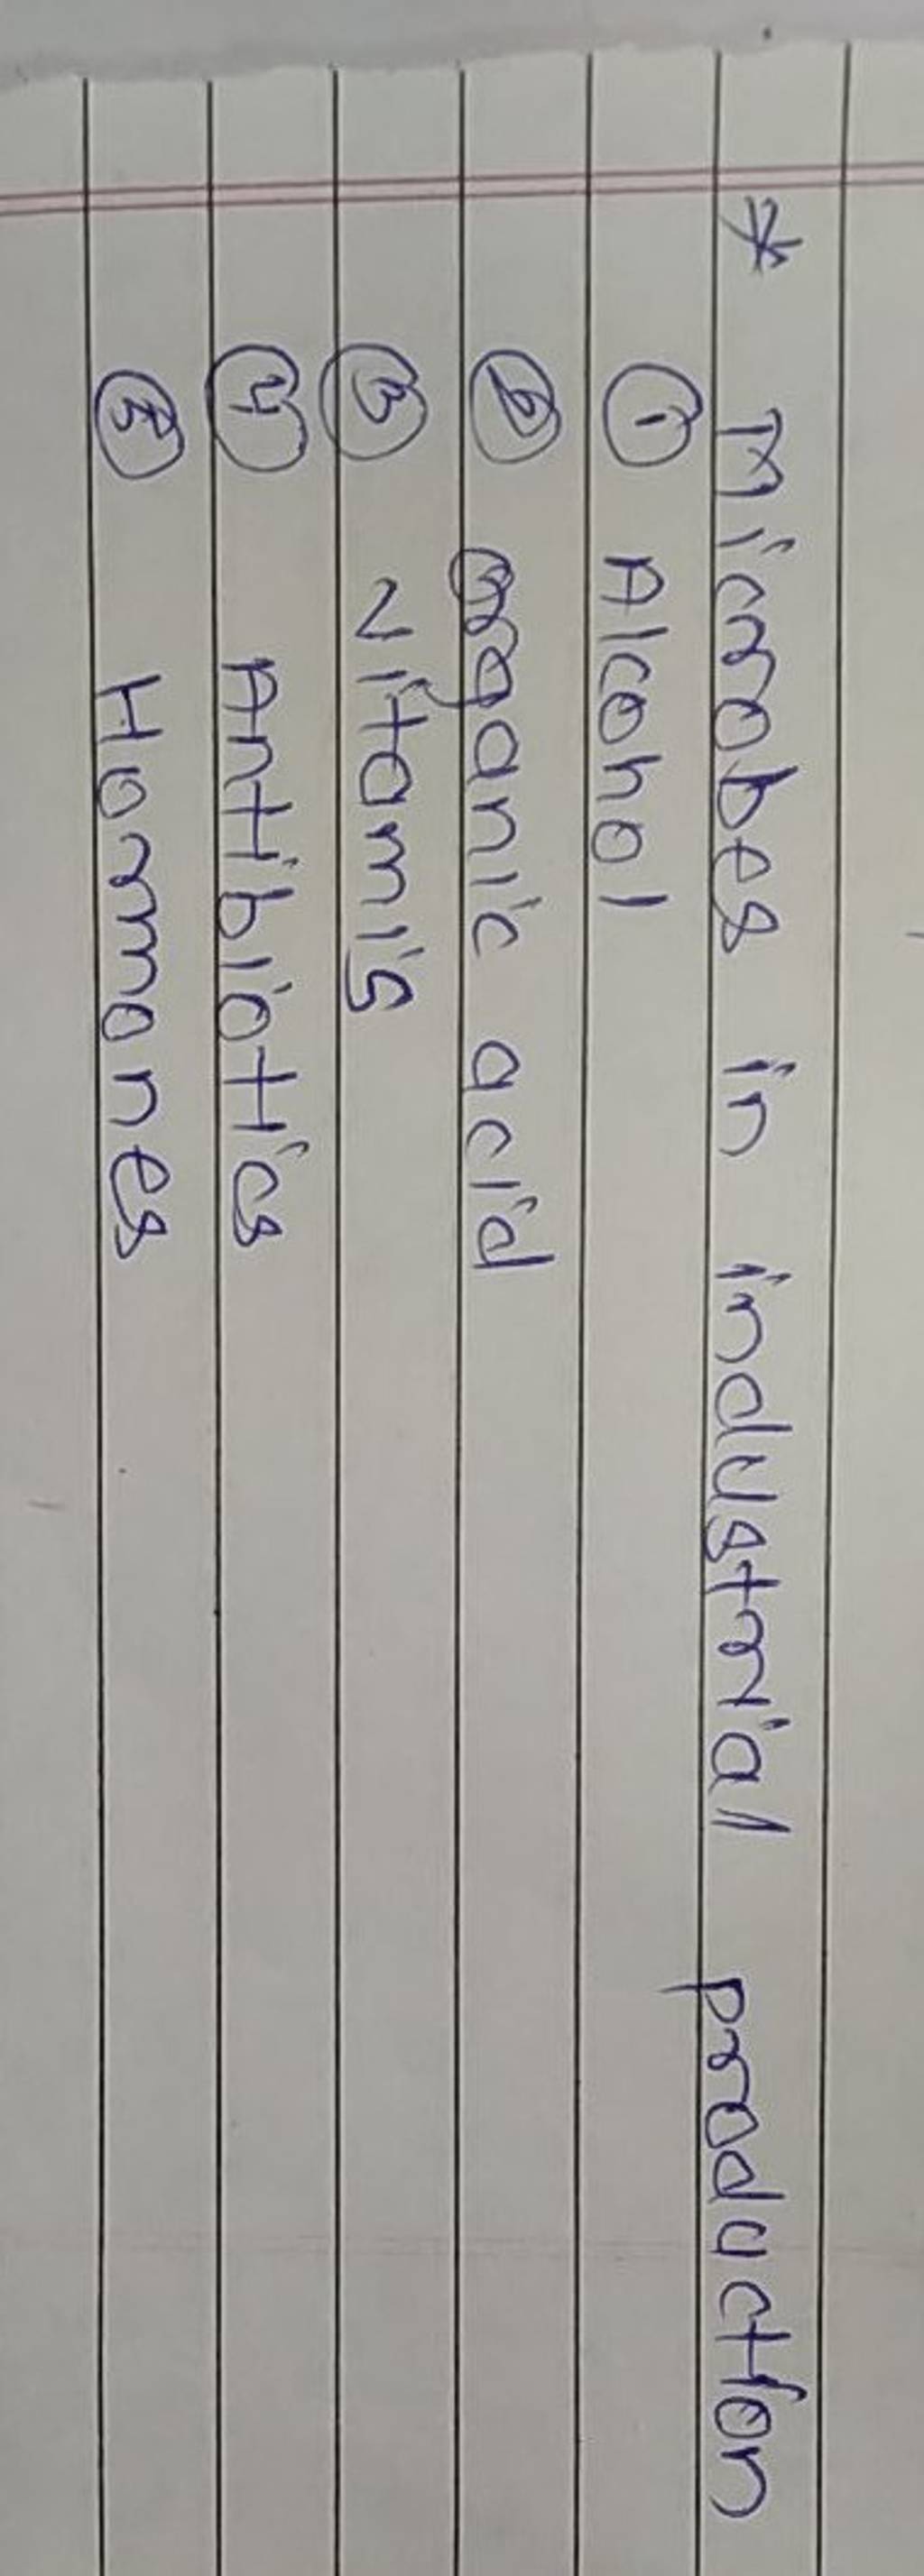 * Microbes in industrial production
① Alcohol
② organic acid
③ Vitamis
④ Antibiotics
⑤ Hormones